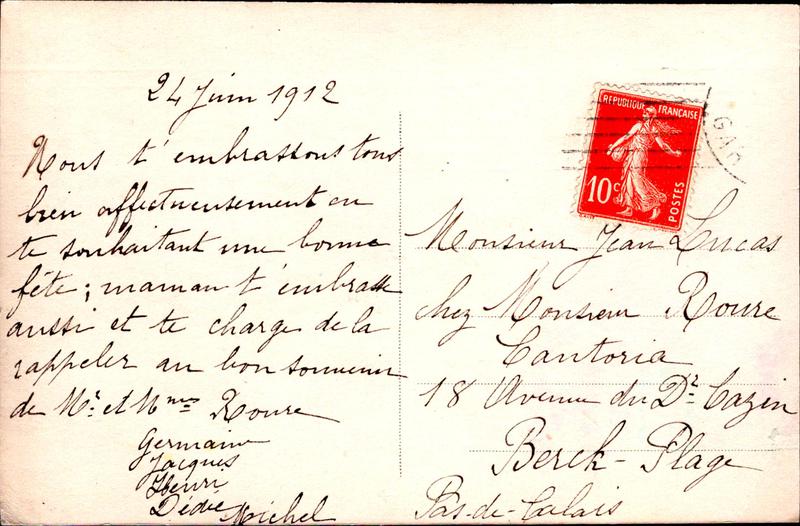 24 Juin 1912
Nous t'embrassons tous
bien affectueusement en
te souhaitant une bonne
fête; maman t'embrasse
aussi et te charge de la
rappeler au bon souvenir
de Mr. et Mmes Roure
Germaine
Jacques
Henri
Dédée Michel
REPUBLIQUE FRANÇAISE
10c
POSTES
GAR
Monsieur Jean Lucas
chez Monsieur Roure
Cantoria
18 Avenue du Dr. Cazin
Berck-Plage
Pas-de-Calais